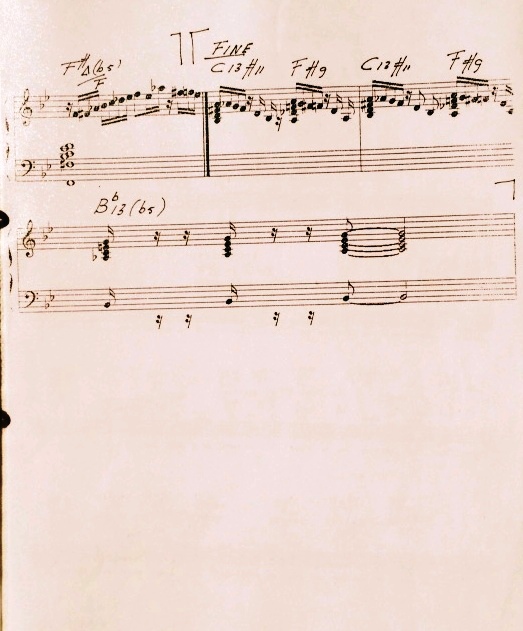 FINE
F#Δ(b5)/F C13#11 F#9 C13#11 F#9
Bb13(b5)